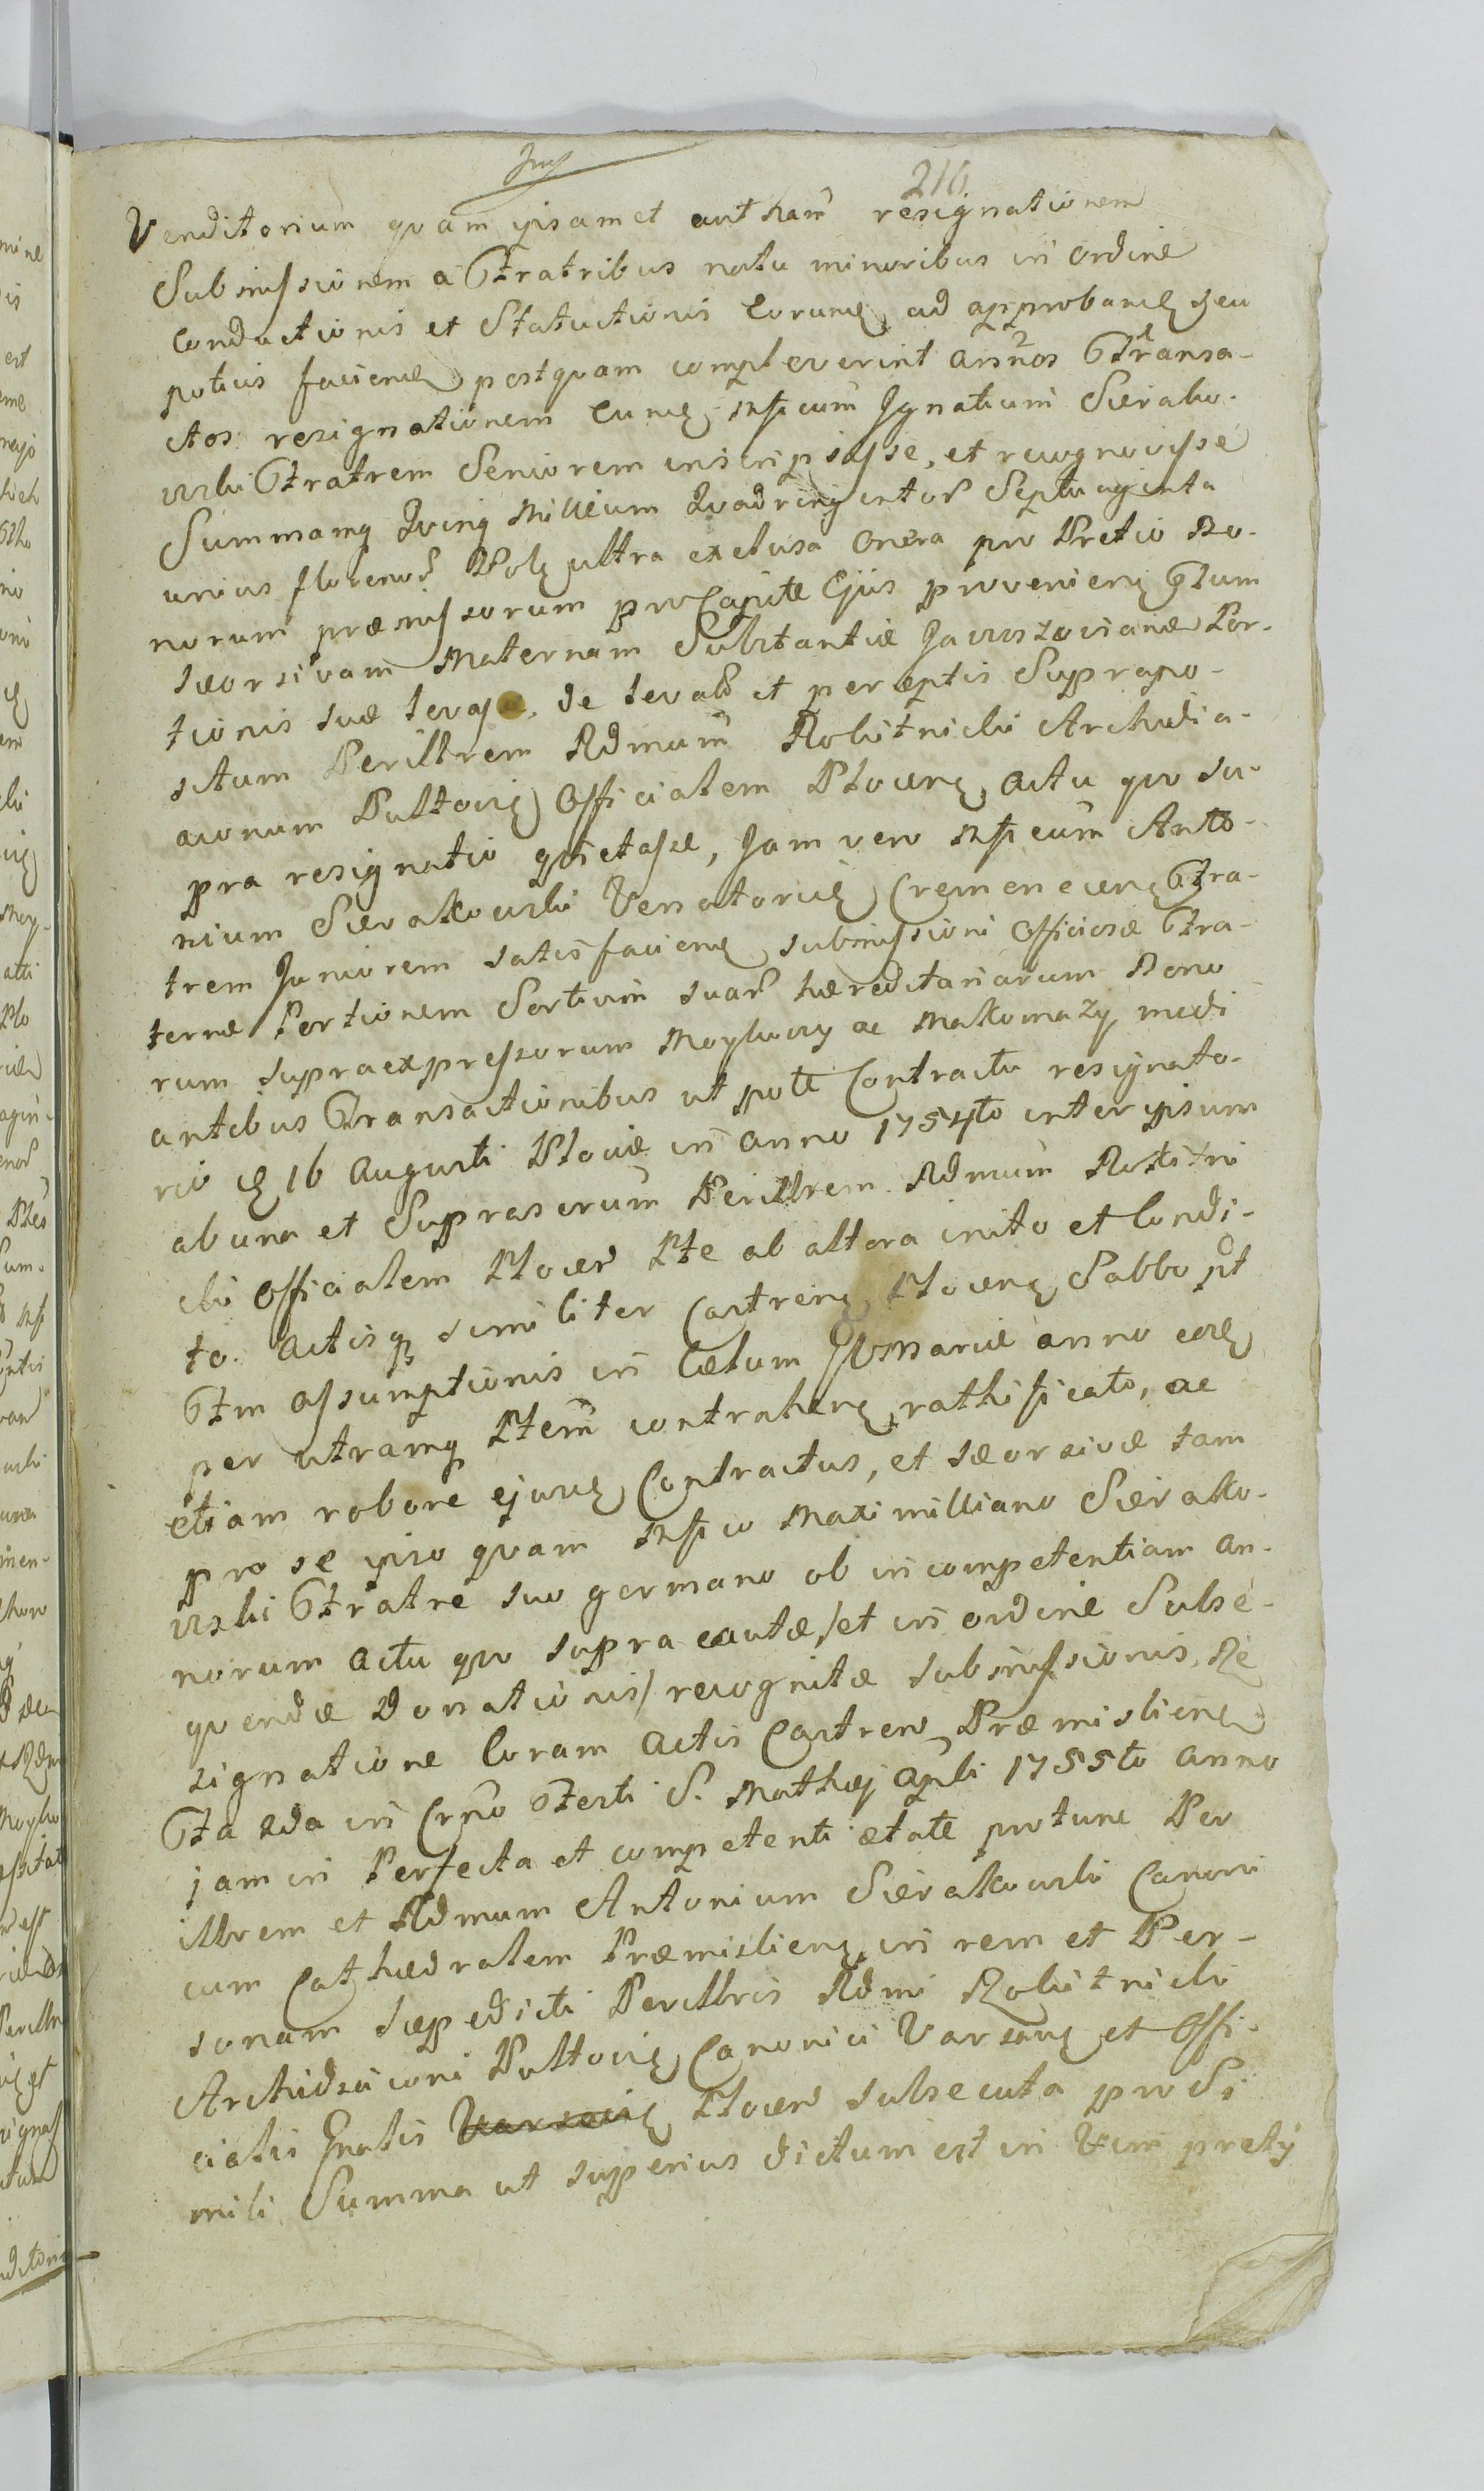 216
Venditorium quam ipsamet autham resignationem
Submissionem a Fratribus natu minoribus in ordine
Conductionis et Statutionis Eorund ad approband seu
potius faciend postquam compleverint annos Transa-
ctos resignationem Eund Mfcum Ignatium Sierako-
wski Fratrem Seniorem inscripsisse, et recognovisse
Summamq Quinq Millium Quadringentor Septuaginta
unius florenor Pol ultra exclusa Onera pro Pretio Bo-
norum præmissorum pro Capite Ejus provenien Tum
seorsivam Maternam Substantiæ Jaroszoviana Por-
tionis suæ levasse, de levatis et perceptis Suprapo-
situm Perillrem Rdmum Rokitnicki Archidia-
conum Pultovien Officialem Plocen, actu quo su-
pra resignatio quietasse, Jam vero Mfcum Anto-
nium Sierakowski Venatorid Cremenecen Fra-
trem Juniorem satisfaciend submissioni Officiosæ Fra-
ternæ Portionem Sortium suar hæreditariarum Bono
rum supraexpressorum Moykowy ac Makomazy medi
antibus Transactionibus ut pote Contractu resignato-
rio d 16 Augusti Plociæ in anno 1754to inter ipsum
ab una et Suprascrum Perillrem Rdmum Rokitni
cki Officialem Plocen Pte ab altera inito et Condi-
to. Actisq similiter Castren Plocen Sabbo pt
Ftm assumptionis in Cælum BVMariæ anno eod
per utramq Ptem contrahen rathificato, ac
etiam robore ejusd Contractus, et seorsivæ tam
pro se ipso quam Mfco Maximilliano Sierako-
wski Fratre suo germano ob incompetentiam an-
norum Actu quo supra cautæ /et in ordine Subse-
quendæ Donationis/ recognitæ submissionis, Re
signatione Coram Actis Castren Præmislien
Fta 2da in Crno Festi S. Mathæj Apli 1755to anno
jam in Perfecta et competenti ætate protunc Per
illrem et Rdmum Antonium Sierakowski Canoni
cum Cathædralem Præmislien in rem et Per-
sonam sæpedicti Perillris Rdmi Rokitnicki
Archidiaconi Pultovien Canonici Varsavien et Offi-
cialis Gnalis Varsavien Plocen subsecuta pro Si
mili Summa ut superius dictum est in Vim pretij